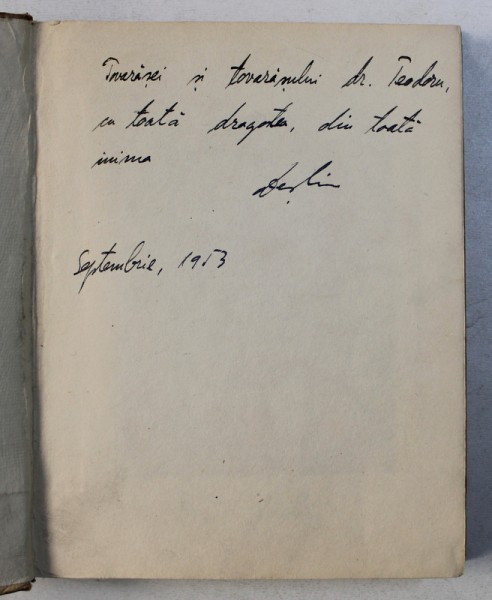 Tovarășei și tovarășului dr. Teodoru,
cu toată dragostea, din toată
inima
Deșliu
Septembrie, 1953